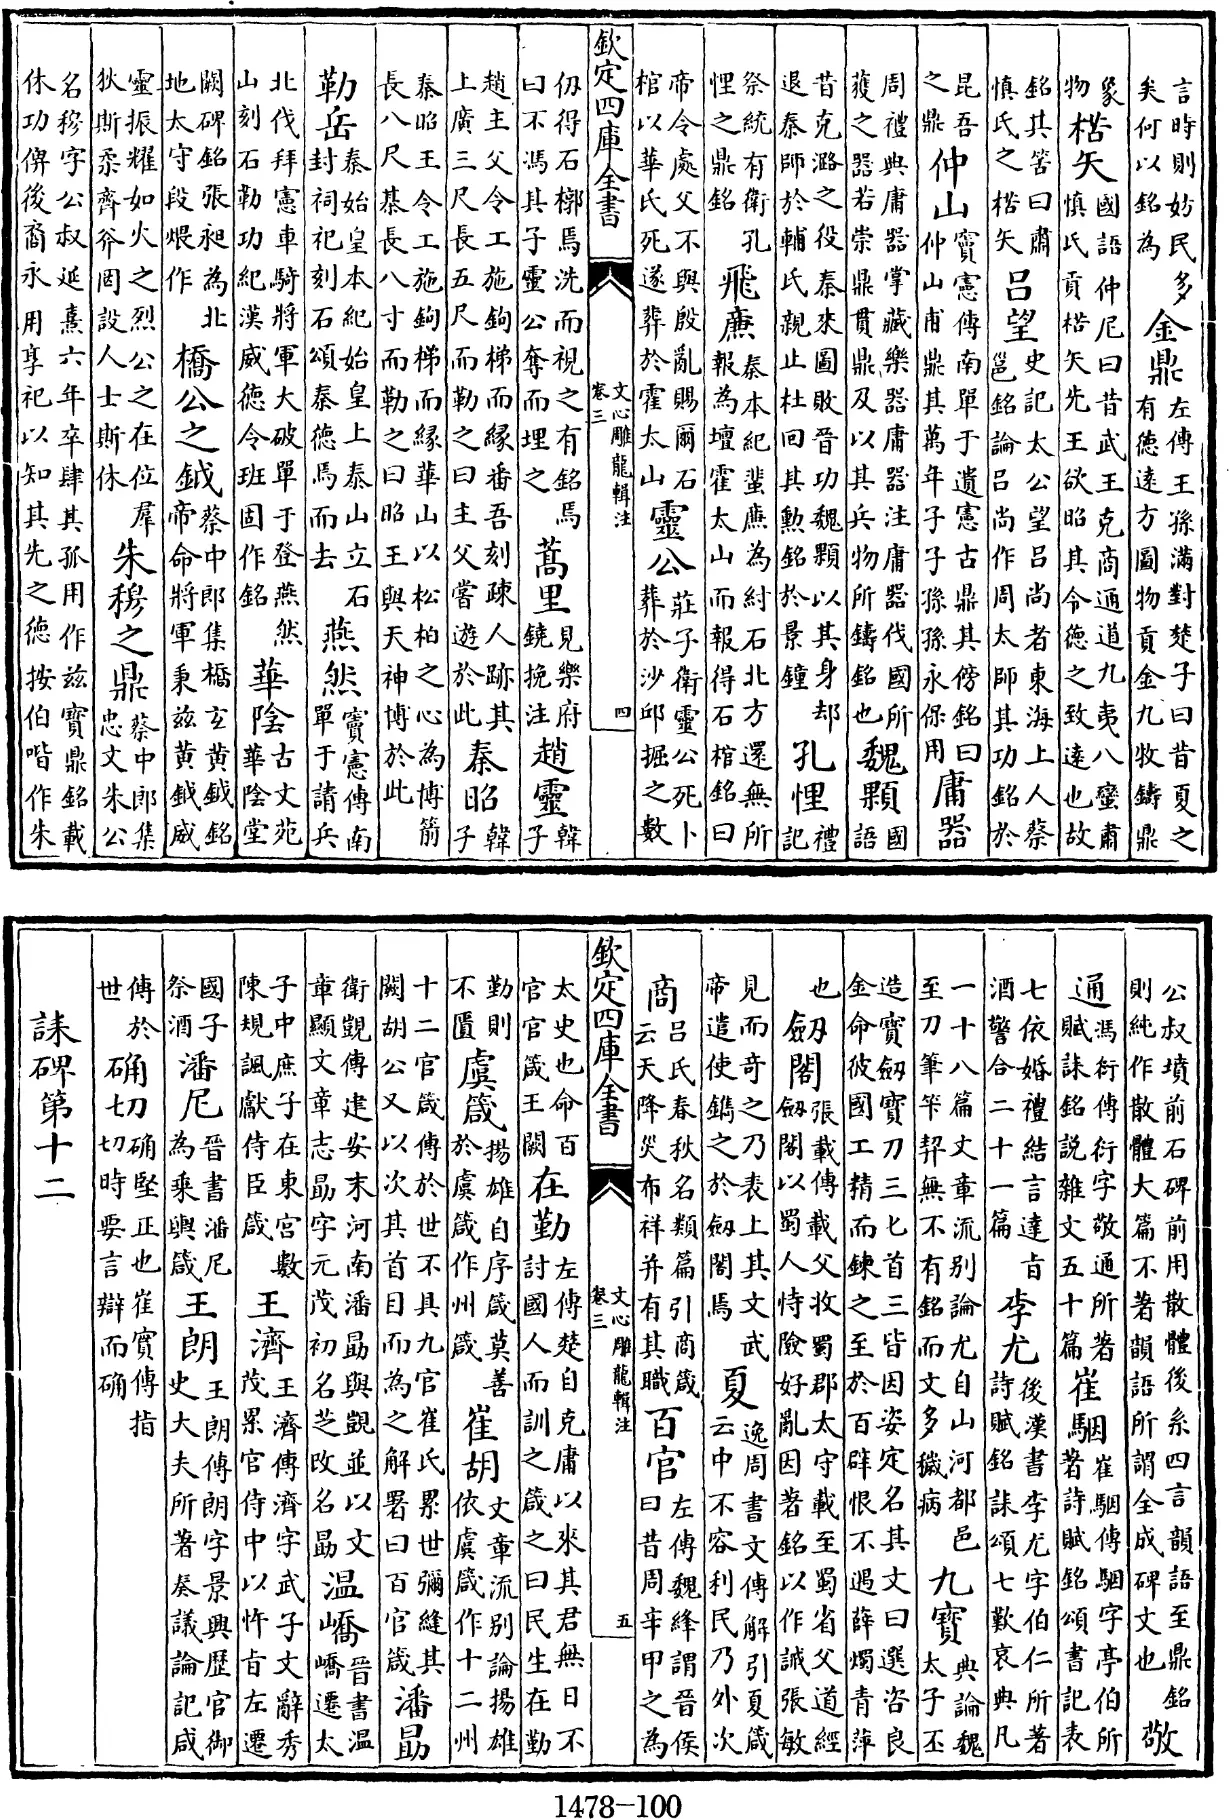 言時則妨民多矣何以銘為金鼎左傳王孫滿對楚子曰昔夏之有德遠方圖物貢金九牧鑄鼎
象物楛矢國語仲尼曰昔武王克商通道九夷八蠻肅慎氏貢楛矢先王欲昭其令德之致遠也故
銘其筈曰肅慎氏之楛矢呂望史記太公望呂尚者東海上人蔡邕銘論呂尚作周太師其功銘於
昆吾之鼎仲山竇憲傳南單于遺憲古鼎其傍銘曰仲山甫鼎其萬年子子孫孫永保用庸器
周禮典庸器掌藏樂器庸器注庸器伐國所獲之器若崇鼎貫鼎及以其兵物所鑄銘也魏顆國語
昔克潞之役秦來圖敗晉功魏顆以其身却退秦師於輔氏親止杜回其勲銘於景鐘孔悝禮記
祭統有衛孔悝之鼎銘飛廉秦本紀蜚廉為紂石北方還無所報為壇霍太山而報得石棺銘曰
帝令處父不與殷亂賜爾石棺以華氏死遂葬於霍太山靈公莊子衛靈公死卜葬於沙邱掘之數
欽定四庫全書
文心雕龍輯注
卷三
四
仞得石槨焉洗而視之有銘焉曰不馮其子靈公奪而埋之蒿里見樂府鐃挽注趙靈韓子
趙主父令工施鉤梯而緣番吾刻疎人跡其上廣三尺長五尺而勒之曰主父嘗遊於此秦昭韓子
秦昭王令工施鉤梯而緣華山以松柏之心為博箭長八尺棊長八寸而勒之曰昭王與天神博於此
勒岳秦始皇本紀始皇上泰山立石封祠祀刻石頌秦德焉而去燕然竇憲傳南單于請兵
北伐拜憲車騎將軍大破單于登燕然山刻石勒功紀漢威德令班固作銘華陰古文苑華陰堂
闕碑銘張昶為北地太守段煨作橋公之鉞蔡中郎集橋玄黄鉞銘帝命將軍秉兹黄鉞威
靈振耀如火之烈公之在位羣狄斯柔齊斧罔設人士斯休朱穆之鼎蔡中郎集忠文朱公
名穆字公叔延熹六年卒肆其孤用作兹寶鼎銘載休功俾後裔永用享祀以知其先之德按伯喈作朱
公叔墳前石碑前用散體後系四言韻語至鼎銘則純作散體大篇不著韻語所謂全成碑文也敬
通馮衍傳衍字敬通所著賦誄銘説雜文五十篇崔駰崔駰傳駰字亭伯所著詩賦銘頌書記表
七依婚禮結言達㫖酒警合二十一篇李尤後漢書李尤字伯仁所著詩賦銘誄頌七歎哀典凡
一十八篇文章流别論尤自山河都邑至刀筆竿契無不有銘而文多穢病九寶典論魏太子丕
造寶劔寶刀三匕首三皆因姿定名其文曰選咨良金命彼國工精而鍊之至於百辟恨不遇薛燭青萍
也劔閣張載傳載父收蜀郡太守載至蜀省父道經劔閣以蜀人恃險好亂因著銘以作誡張敏
見而奇之乃表上其文武帝遣使鐫之於劔閣焉夏逸周書文傳解引夏箴云中不容利民乃外次
商吕氏春秋名類篇引商箴云天降災布祥并有其職百官左傳魏絳謂晉侯曰昔周辛甲之為
欽定四庫全書
文心雕龍輯注
卷三
五
太史也命百官官箴王闕在勤左傳楚自克庸以來其君無日不討國人而訓之箴之曰民生在勤
勤則不匱虞箴揚雄自序箴莫善於虞箴作州箴崔胡文章流别論揚雄依虞箴作十二州
十二官箴傳於世不具九官崔氏累世彌縫其闕胡公又以次其首目而為之解署曰百官箴潘勗
衛覬傳建安末河南潘勗與覬並以文章顯文章志勗字元茂初名芝改名勗温嶠晉書温嶠遷太
子中庶子在東宮數陳規諷獻侍臣箴王濟王濟傳濟字武子文辭秀茂累官侍中以忤㫖左遷
國子祭酒潘尼晉書潘尼為乘輿箴王朗王朗傳朗字景興歴官御史大夫所著奏議論記咸
傳於世确切确堅正也崔寔傳指切時要言辯而确
誄碑第十二
1478-100